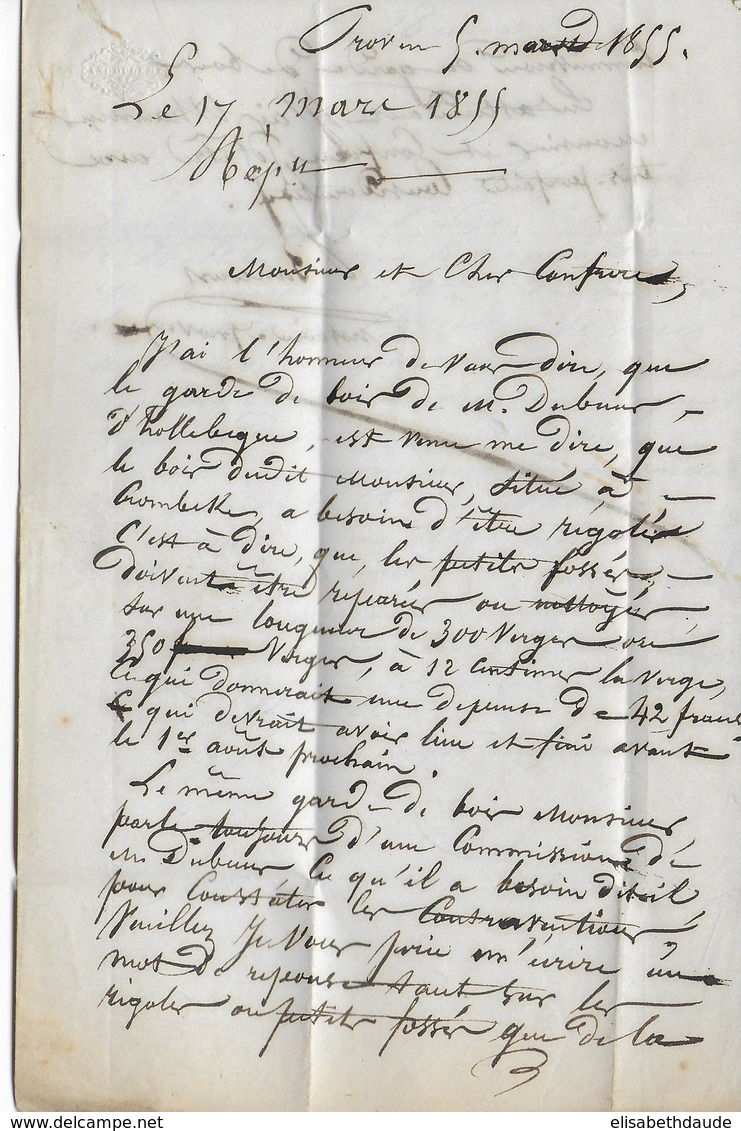 Proven 5. mars 1855.
Le 17 mars 1855
Rép.
Monsieur et Cher Confrere,
J'ai l'honneur de Vous dire, que
le garde de bois de M. Dubuus
d'hollebeque, est venu me dire, que
le bois dudit Monsieur, situé à
Crombeke, a besoin d'être rigolé
C'est à dire, que, les petits fossés,
doivent être reparés ou nettoyés,
sur une longueur de 300 Verges ou
350 Verges, à 12 centimes la Verge,
ce qui donnerait une depense de 42 francs
ce qui devrait avoir lieu et fini avant
le 1er août prochain.
Le même garde de bois Monsieur,
parle toujours d'une Commission de
M. Dubuus ce qu'il a besoin dit-il
pour Constater les Contraventions
Veuillez Je Vous prie m'écrire un
mot de reponse tant sur les
rigoles ou petits fossés que de la
elisabethdaude